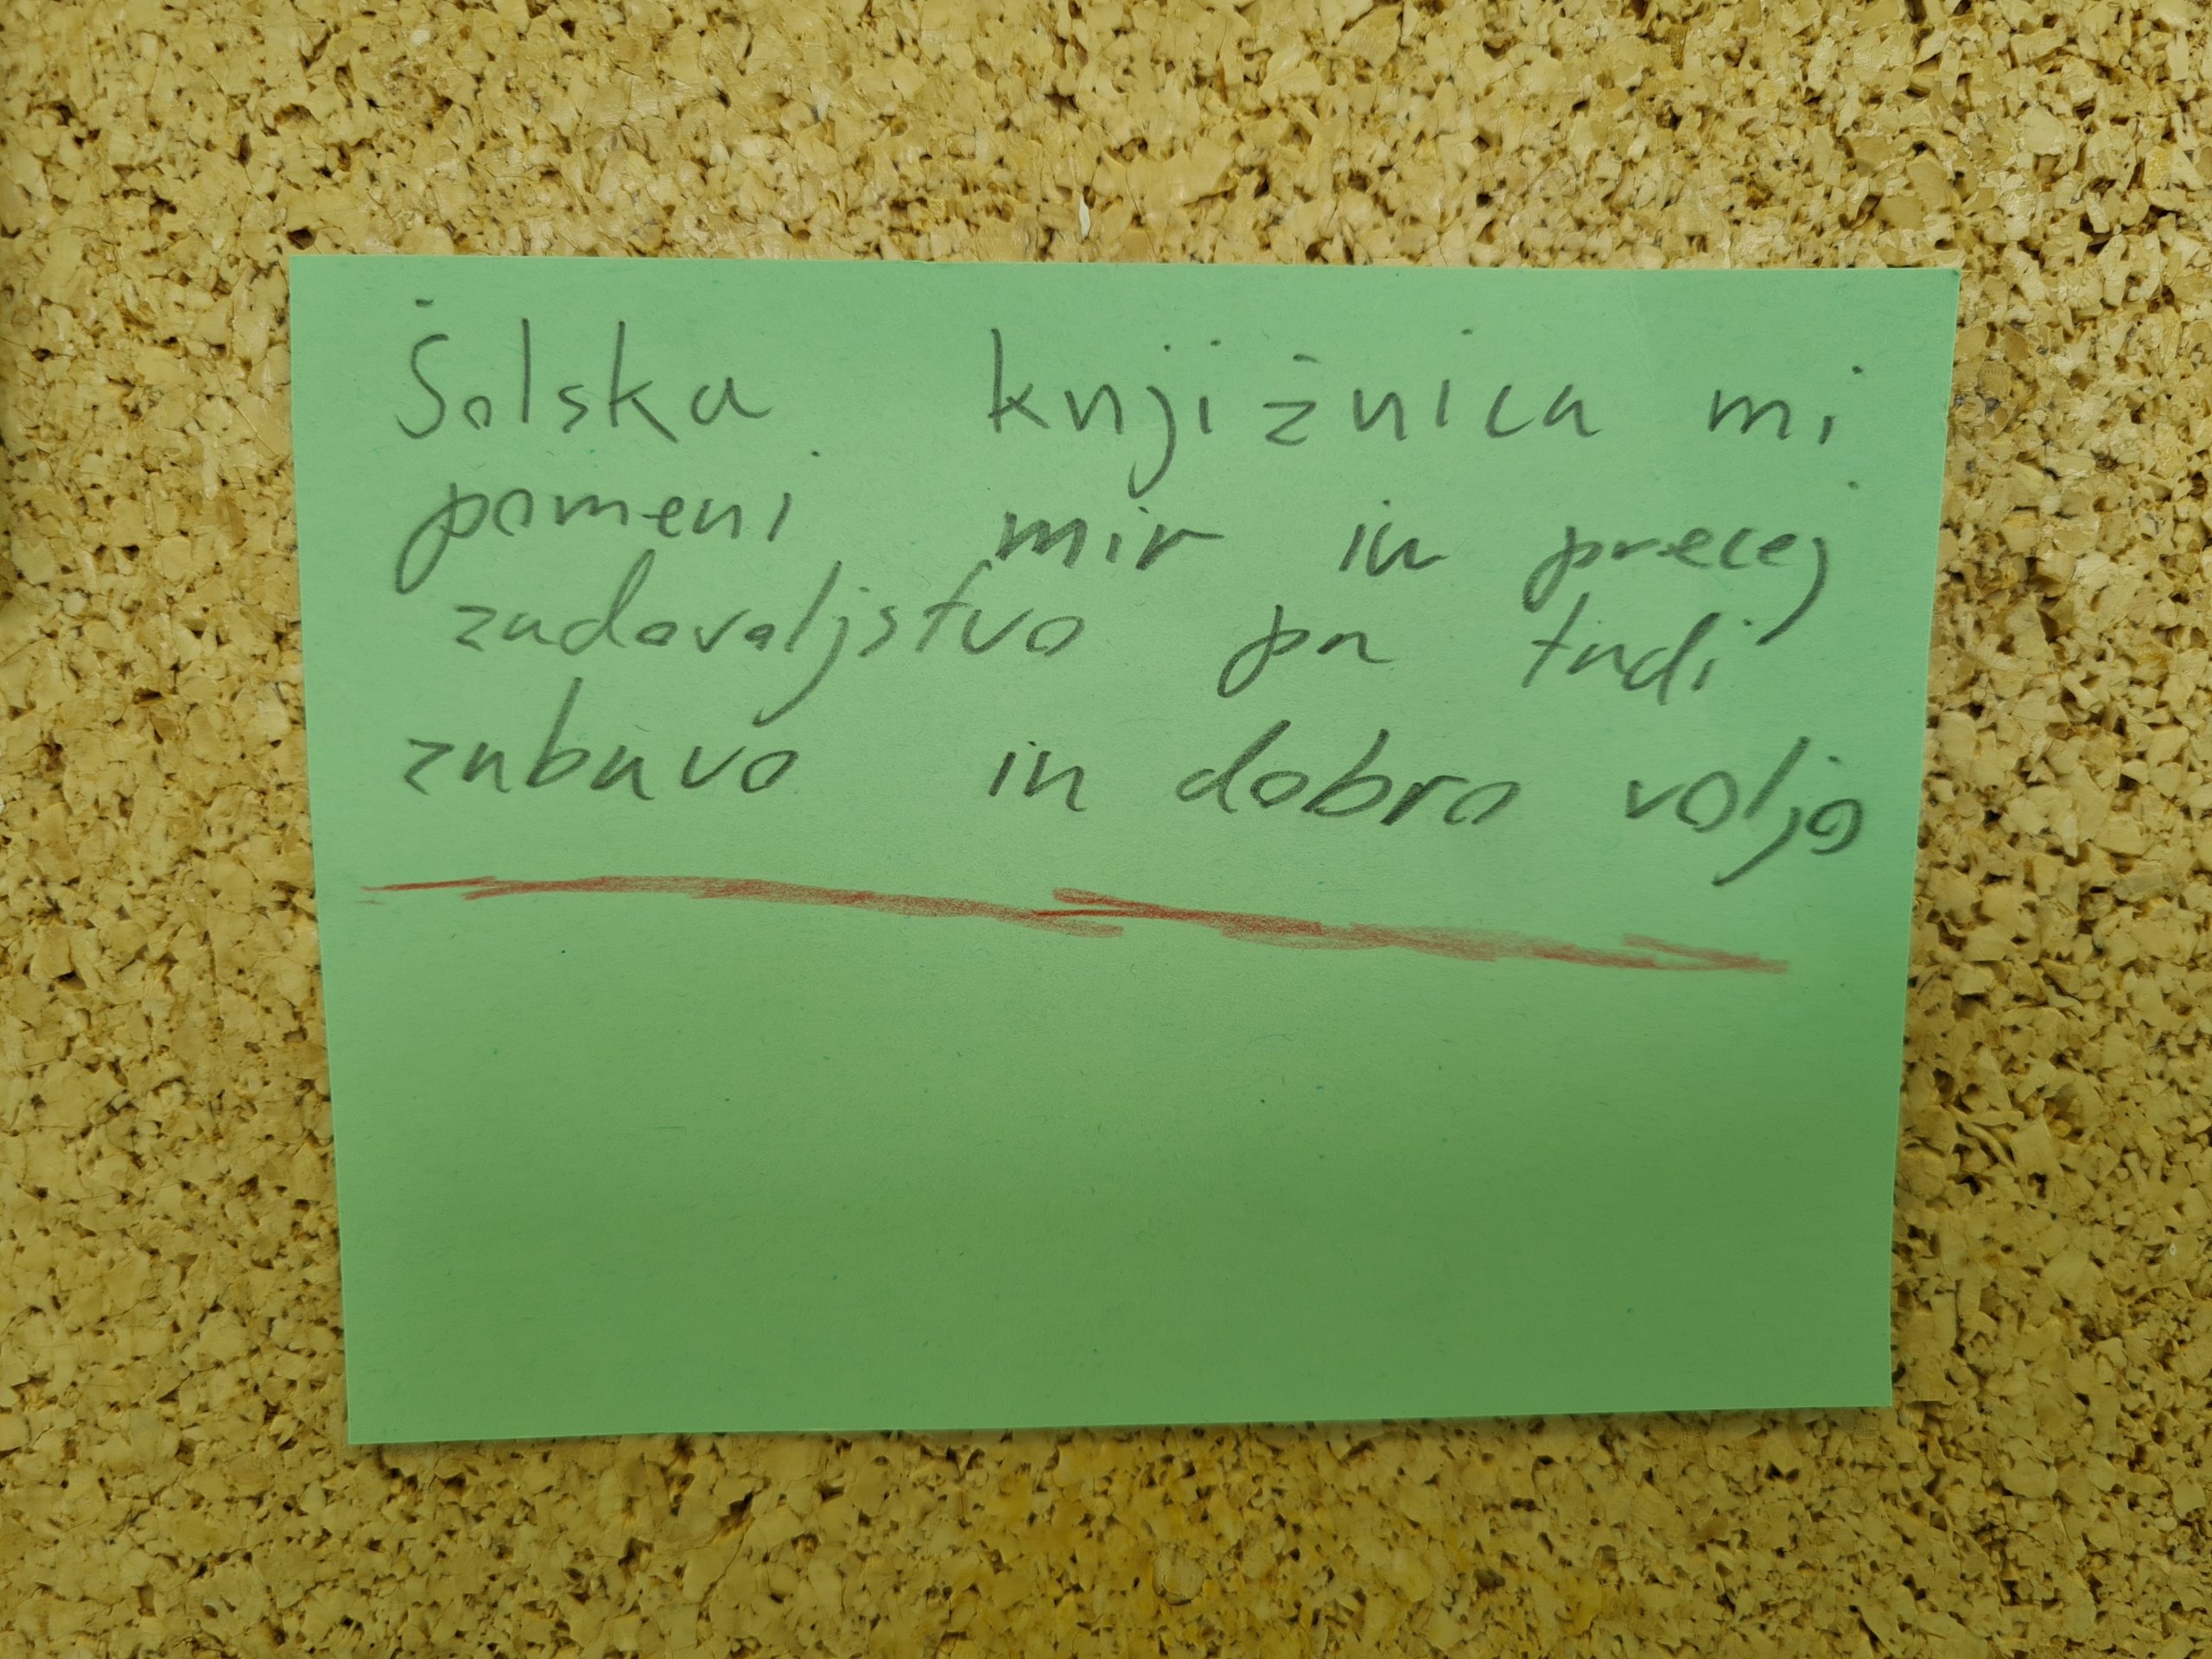 Šolska knjižnica mi
pomeni mir in precej
zadovoljstvo pa tudi
zabavo in dobro voljo